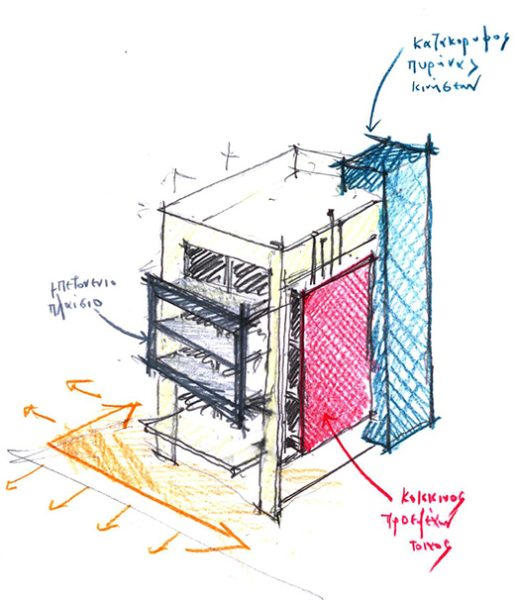 κατακορυφος
πυρήνας
κινήσεων
μπετονενιο
πλαίσιο
κοκκινος
προεξέχων
τοιχος